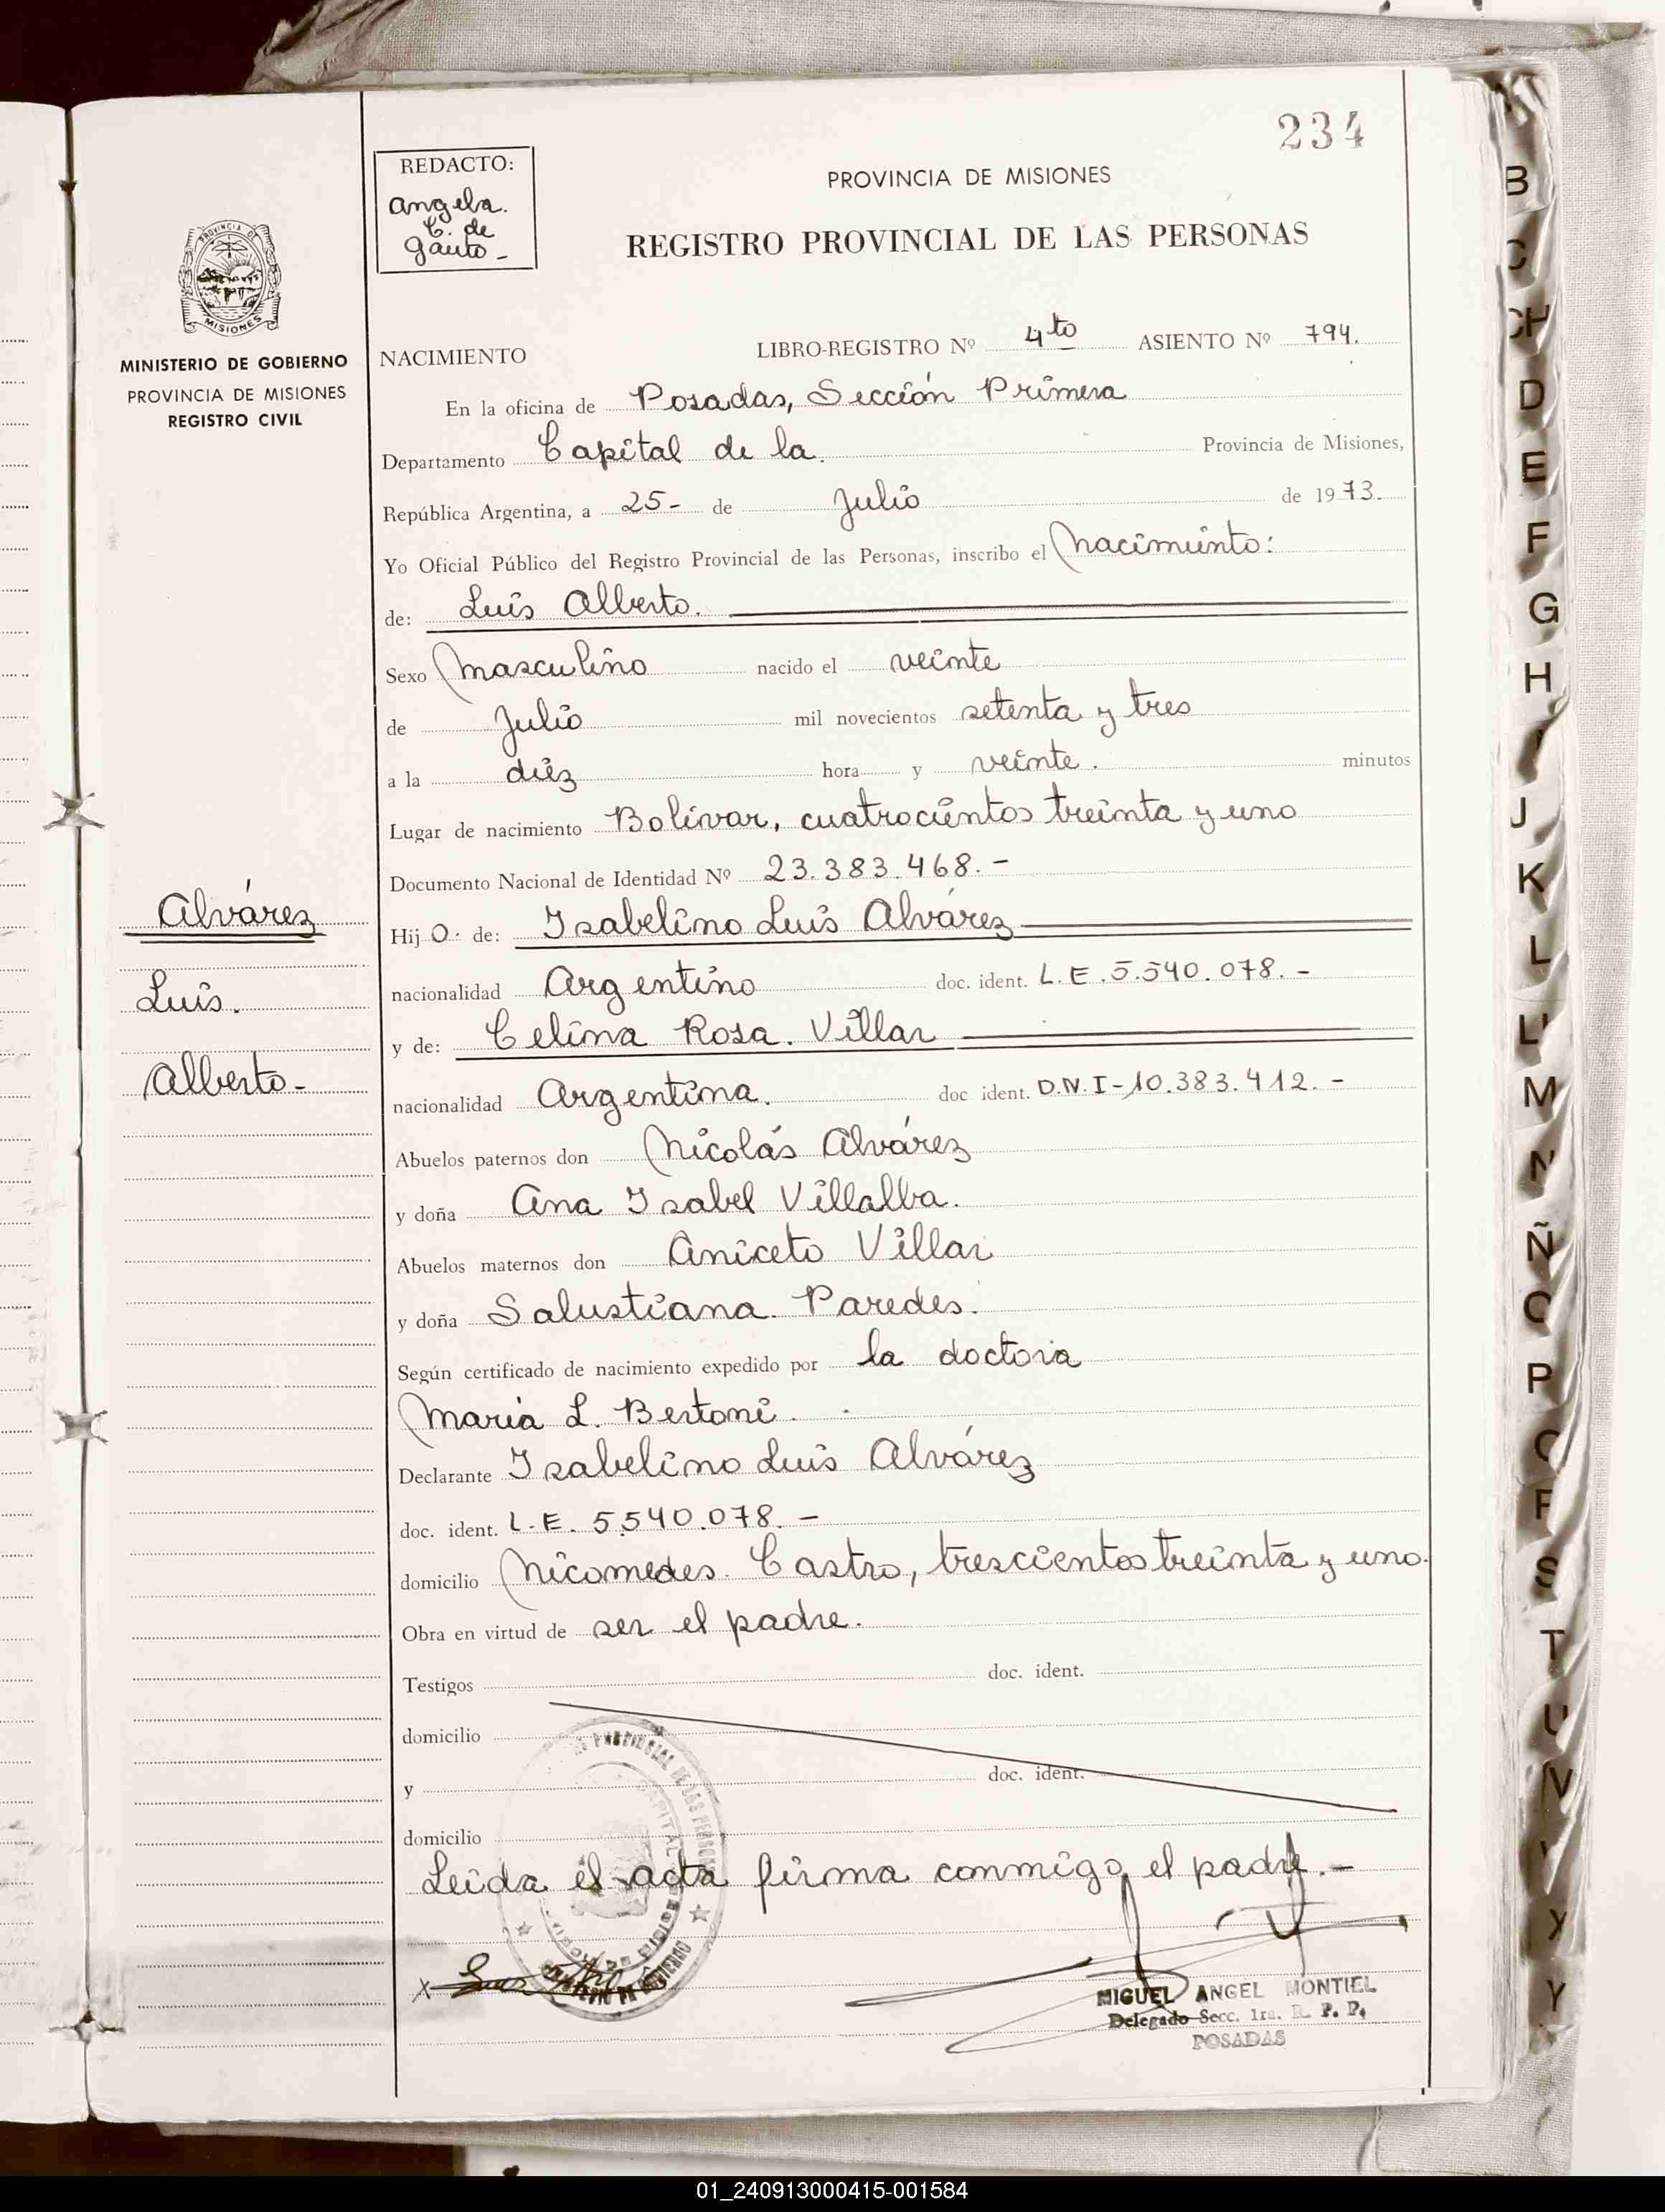 234
REDACTO:
Angela.
C. de
Gauto -
PROVINCIA DE MISIONES
REGISTRO PROVINCIAL DE LAS PERSONAS
PROVINCIA DE
MISIONES
MINISTERIO DE GOBIERNO
PROVINCIA DE MISIONES
REGISTRO CIVIL
NACIMIENTO LIBRO-REGISTRO Nº 4to ASIENTO Nº 794.
En la oficina de Posadas, Sección Primera
Departamento Capital de la. Provincia de Misiones,
República Argentina, a 25- de Julio de 1973.
Yo Oficial Público del Registro Provincial de las Personas, inscribo el Nacimiento:
de: Luis Alberto.
Sexo Masculino nacido el veinte
de Julio mil novecientos setenta y tres
a la diez hora y veinte. minutos
Lugar de nacimiento Bolívar, cuatrocientos treinta y uno
Documento Nacional de Identidad Nº 23.383.468.-
Alvárez
Hij o. de: Isabelino Luis Alvárez
Luis.
nacionalidad Argentino doc. ident. L.E.5.540.078.-
y de: Celina Rosa. Villar
Alberto-
nacionalidad Argentina. doc ident. D.N.I-10.383.412.-
Abuelos paternos don Nicolás Alvárez
y doña Ana Isabel Villalba.
Abuelos maternos don Aniceto Villar
y doña Salustiana. Paredes.
Según certificado de nacimiento expedido por la doctora
María L. Bertoni.
Declarante Isabelino Luis Alvárez
doc. ident. L.E. 5.540.078.-
domicilio Nicomedes. Castro, trescientos treinta y uno.
Obra en virtud de ser el padre.
Testigos doc. ident.
domicilio
y doc. ident.
domicilio
Leida el acta firma conmigo el padre.-
X
MIGUEL ANGEL MONTIEL
Delegado Secc. 1ra. R. P. P.
POSADAS
B
C
CH
D
E
F
G
H
I
J
K
L
LL
M
N
Ñ
O
P
Q
R
S
T
U
V
Y
01_240913000415-001584